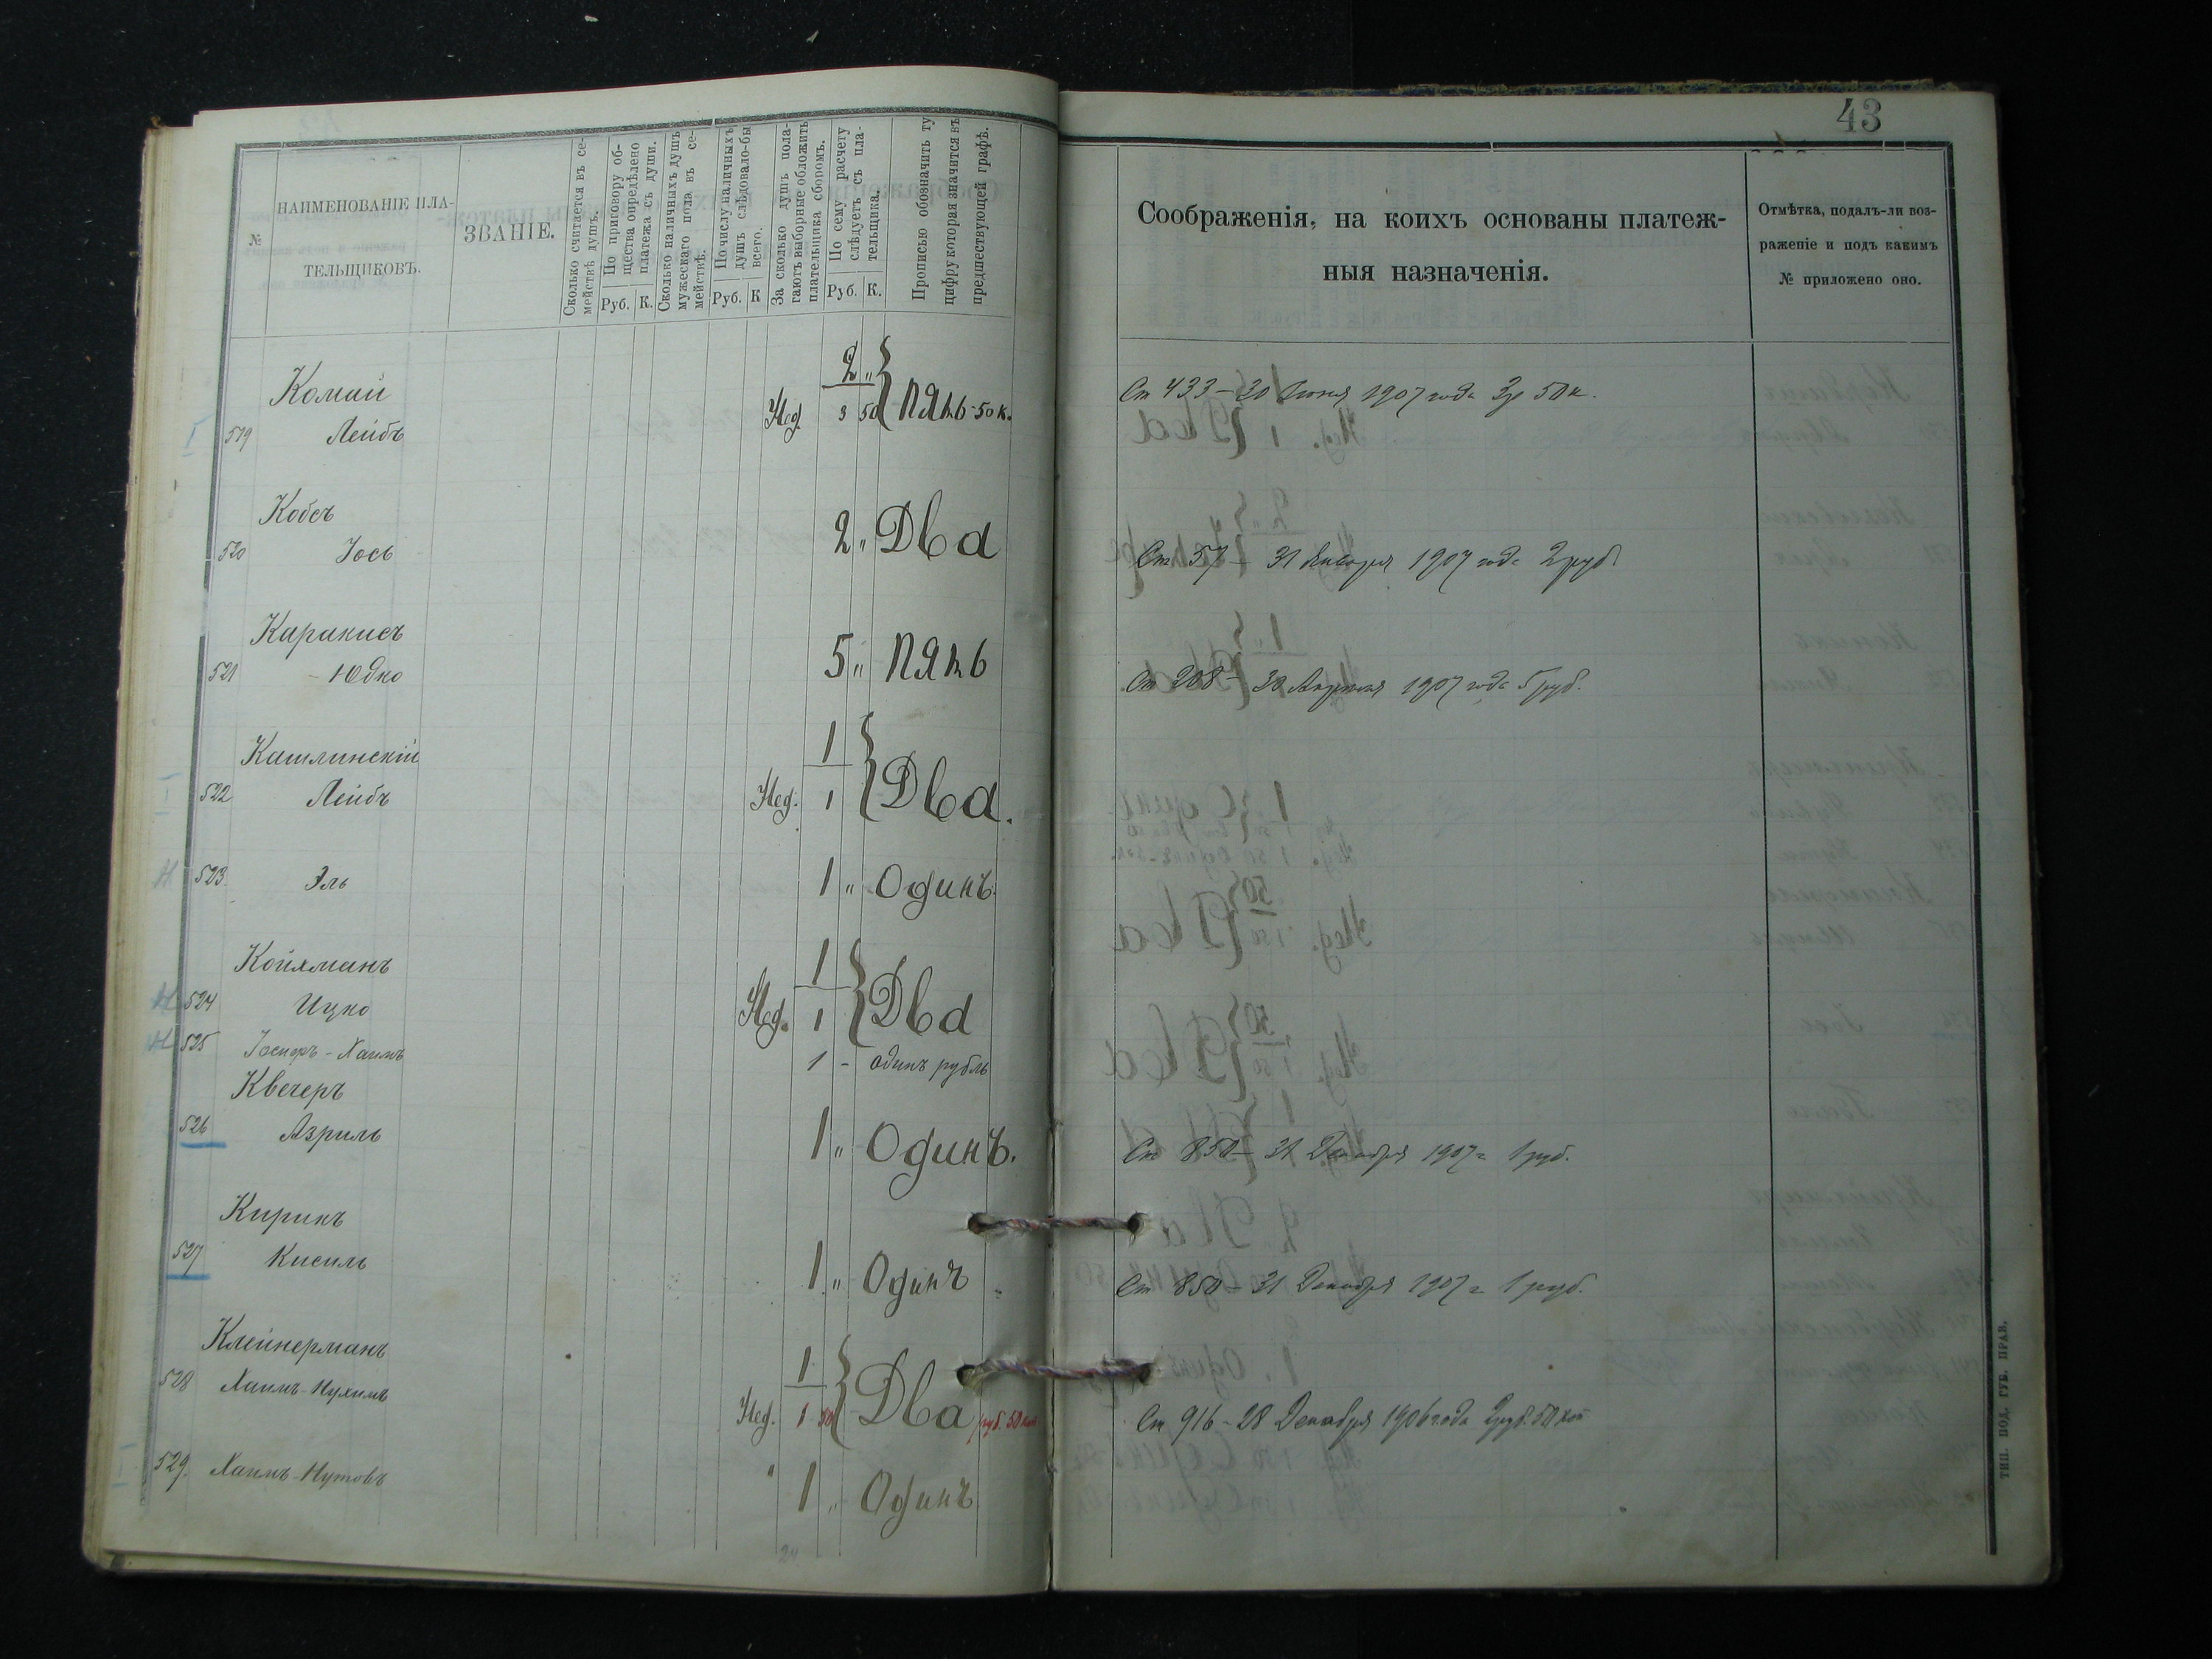 43
№
НАИМЕНОВАНІЕ ПЛА-
ТЕЛЬЩИКОВЪ.
ЗВАНІЕ.
Сколько считается въ се-
мействѣ душъ.
По приговору об-
щества опредѣлено
платежа съ души.
Руб. К.
Сколько наличныхъ душъ
мужескаго пола въ се-
мействѣ.
По числу наличныхъ
душъ слѣдовало-бы
всего.
Руб. К
За сколько душъ пола-
гаютъ выборные обложить
плательщика сборомъ.
По сему расчету
слѣдуетъ съ пла-
тельщика.
Руб. К.
Прописью обозначить ту
цифру которая значится въ
предшествующей графѣ.
Соображенія, на коихъ основаны платеж-
ныя назначенія.
Отмѣтка, подалъ-ли воз-
раженіе и подъ какимъ
№ приложено оно.
Комай
2 "
519 Лейбъ Нед. 3 50 Пять 50 к. Ст 433 – 30 Іюня 1907 года 3р 50 к.
Кобсъ
520 Іось 2 " Два Ст 57 – 31 Января 1907 года 2 руб
Каракисъ
521 Юдко 5 " Пять Ст 208 – 30 Апреля 1907 года 5 руб.
Кашлинскій
1
522 Лейбъ Нед. 1 Два.
523 Эль 1 " Одинъ.
Койхманъ
1
524 Ицко Нед. 1 Два
525 Іосифъ-Хаимъ 1 – один рубль
Квечеръ
526 Азриль 1 " Одинъ. Ст 850 – 31 Декабря 1907 г 1 руб.
Кирикъ
527 Кисиль 1 " Одинъ Ст 850 – 31 Декабря 1907 г 1 руб.
Клейнерманъ
1
528 Хаимъ-Нухимъ Нед. 1 50 Два руб. 50 коп Ст 916 – 28 Декабря 1906 года 2 руб. 50 коп
529. Хаимъ-Нутовъ 1 " Одинъ
ТИП. ПОД. ГУБ. ПРАВ.